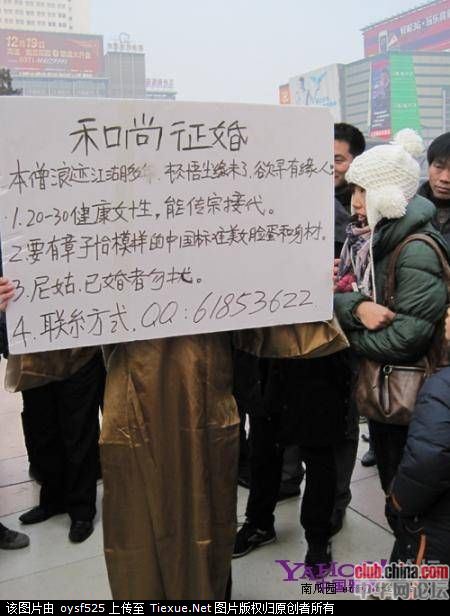 12月19日
和尚征婚
本僧浪迹江湖多年,核悟尘缘未了,欲寻有缘人:
1.20-30健康女性,能传宗接代。
2.要有章子怡模样的中国标准美女脸蛋和身材.
3.尼姑.已婚者勿扰。
4.联系方式.QQ:61853622
YAHOO
club.china.com
中华网论坛
该图片由 oysf525 上传至 Tiexue.Net 图片版权归原创者所有